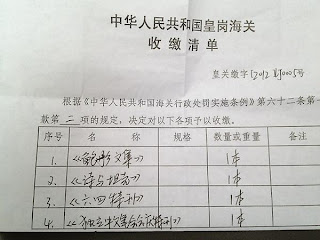 中华人民共和国皇岗海关
收缴清单
皇关缴字[2012]第0005号
根据《中华人民共和国海关行政处罚实施条例》第六十二条第一
款第二项的规定，决定对以下各项予以收缴。
序号 名称 规格 数量或重量 备注
1. 《鲍彤文集》 1本
2. 《诗与坦克》 1本
3. 《六四特刊》 1本
4. 《独立中文笔会会庆特刊》 1本